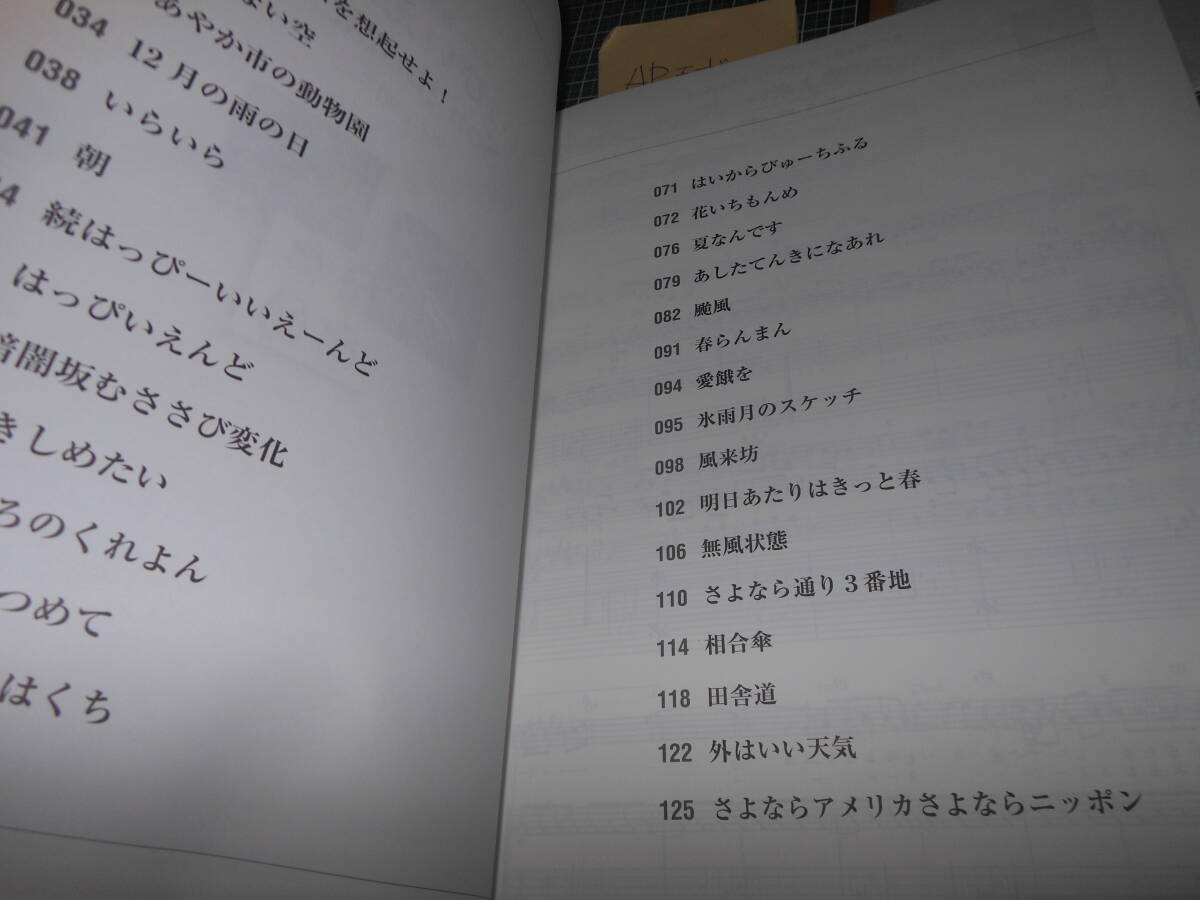 を想起せよ！
ない空
034 あやか市の動物園
038 12月の雨の日
041 いらいら
朝
続はっぴーいいえーんど
はっぴいえんど
暗闇坂むささび変化
きしめたい
ろのくれよん
つめて
はくち
071 はいからびゅーちふる
072 花いちもんめ
076 夏なんです
079 あしたてんきになあれ
082 颱風
091 春らんまん
094 愛餓を
095 氷雨月のスケッチ
098 風来坊
102 明日あたりはきっと春
106 無風状態
110 さよなら通り3番地
114 相合傘
118 田舎道
122 外はいい天気
125 さよならアメリカさよならニッポン